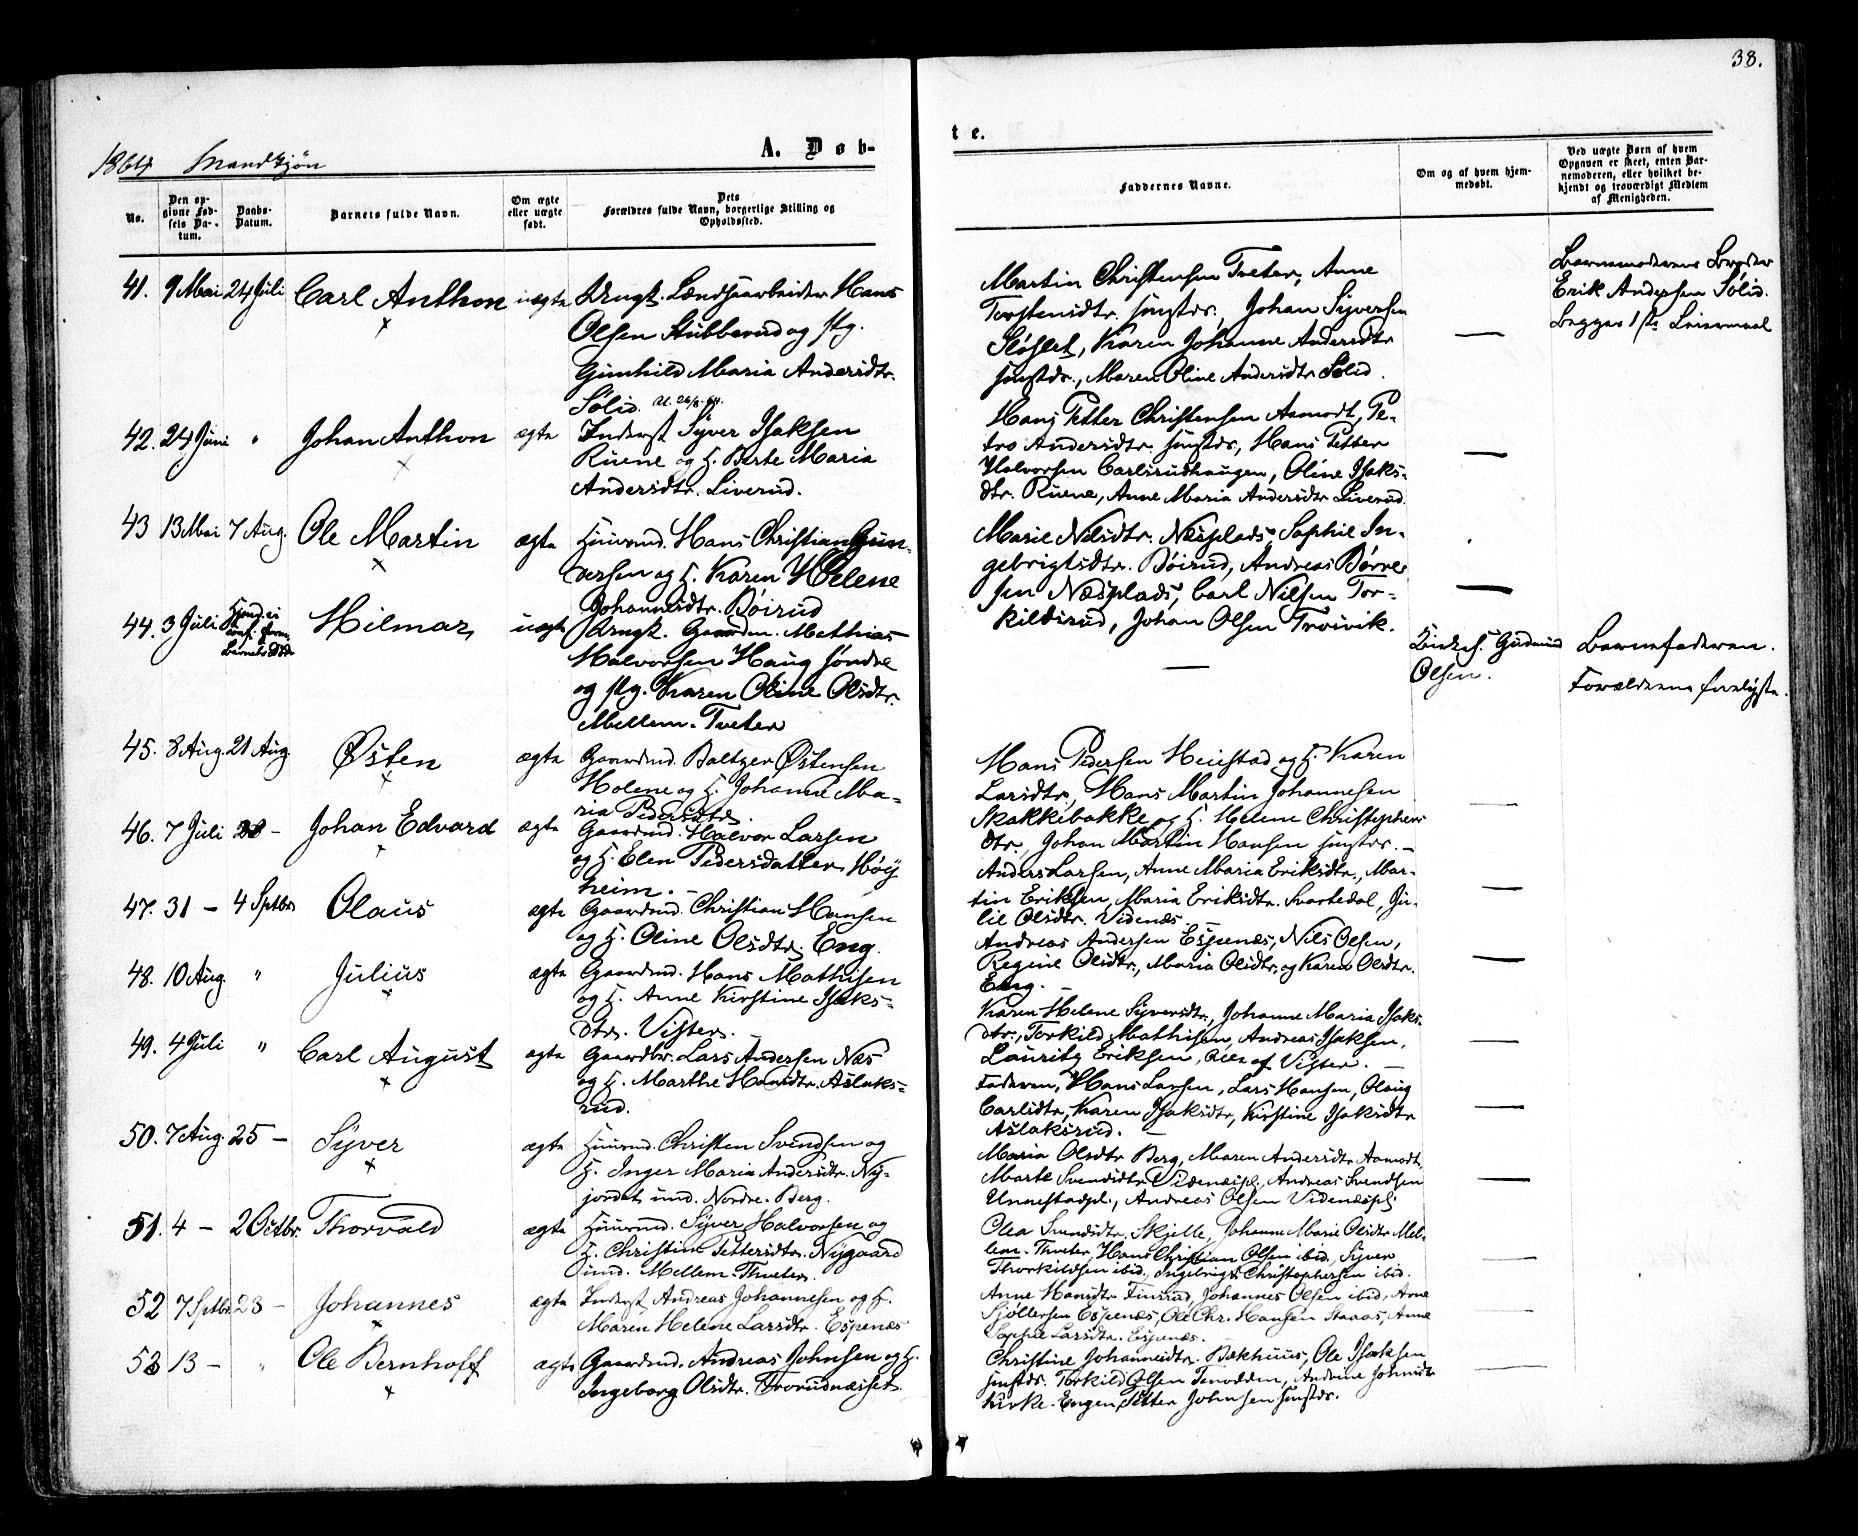 38.
A. Døb-
te.
1864 Mandkjøn
No.
Den op-
givne Fød-
sels Da-
tum.
Daabs-
Datum.
Barnets fulde Navn.
Om ægte
eller uægte
født.
Dets
Forældres fulde Navn, borgerlige Stilling og
Opholdssted.
Faddernes Navne.
Om og af hvem hjem-
medøbt.
Ved uægte Børn af hvem
Opgaven er skeet, enten Bar-
nemoderen, eller hvilket be-
kjendt og troværdigt Medlem
af Menigheden.
41. 9 Mai 24 Juli Carl Anthon uægte Ungk. Lændsarbeider Hans
Olsen Stubberud og Pig.
Gunhild Maria Andersdtr.
Sølid.
Martin Christensen Tveter, Anne
Torstensdtr. smstds., Johan Syversen
Karen Johanne Andersdtr
smstds., Maren Oline Andersdtr Sølid.
—
Barnemoderens Broder
Erik Andersen Sølid.
Begges 1ste Leiermaal
42. 24 Juni " Johan Anthon ægte Inderst Syver Isaksen
Ruene og H. Berte Maria
Andersdtr. Liverud.
Hans Petter Christensen Aamodt, Pe-
tro Andersdtr smstds, Hans Petter
Halvorsen Carlsrudhaugen, Oline Isaks-
dtr. Ruene, Anne Maria Andersdtr Liverud.
—
43 13 Mai 7 Aug. Ole Martin ægte Huusmd. Hans Christian Gun-
dersen og H. Karen Helene
Johannesdtr. Bøirud
Marie Nilsdtr. Næsplads, Sophie In-
gebrigtsdtr. Bøirud, Andreas Børre-
sen Næsplads, Carl Nilsen Tor-
kildsrud, Johan Olsen Trovik.
—
44. 3 Juli Hilmar uægte Ungk. Gaardm. Mathias
Halvorsen Haug søndre
og Pig. Karen Oline Olsdtr.
Mellem-Tveter
—
Kirkes. Gudmund
Olsen.
Barnefaderen.
Forældrene
45. 8 Aug. 21 Aug. Østen ægte Gaardmd. Baltzer Østensen
Holene og H. Johanne Ma-
ria Pedersdtr.
Hans Pedersen Heiestad og H. Karen
Larsdtr., Hans Martin Johannesen
Skakkibakke og H. Helene Christophers-
dtr., Johan Martin Hansen smstds. —
—
46. 7 Juli 28 — Johan Edvard ægte Gaardmd. Halvor Larsen
og H. Elen Pedersdatter Høy
heim. —
Anders Larsen, Anne Maria Eriksdtr., Mar-
tin Eriksen, Maria Eriksdtr. Svartedal, Ju-
lie Olsdtr. Videnæs. —
—
47. 31 — 4 Sptbr Olaus ægte Gaardmd. Christian Hansen
og H. Oline Olsdtr. Eng.
Andreas Andersen Espenæs, Nils Olsen,
Regine Olsdtr., Maria Olsdtr. og Karen Olsdtr.
Eng. —
—
48. 10 Aug. " Julius ægte Gaardmd. Hans Mathisen
og H. Anne Kirstine Isaks-
dtr. Vister. —
Karen Helene Syversdtr., Johanne Maria Isaks-
dtr., Torkild Mathisen, Andreas Isaksen,
Lauritz Eriksen, Alle af Vister. —
—
49. 4 Juli " Carl August ægte Gaardbr. Lars Andersen Næs
og H. Marthe Hansdtr. Aslaks-
rud.
Faderen, Hans Larsen, Lars Hansen, Olaug
Carlsdtr, Karen Isaksdtr, Kirstine Isaksdtr
Aslaksrud. —
—
50. 7 Aug. 25 — Syver ægte Huusmd. Christen Svendsen og
H. Inger Maria Andersdtr. Ny-
jordet und. Nordre Berg.
Maria Olsdtr Berg, Maren Andersdtr Aamodt,
Marte Svendsdtr. Videnæspl., Andreas Svendsen
Unnestadpl., Andreas Olsen Videnæspl.
—
51. 4 — 2 Octbr. Thorvald ægte Huusmd. Syver Halvorsen og
H. Christine Pettersdtr. Nygaard
und. Mellem-Thveter.
Olea Svendsdtr. Skjelle, Johanne Marie Olsdtr Mel-
lem-Thveter, Hans Christian Olsen ibid., Syver
Thorkildsen ibid., Ingebrigt Christophersen ibid.
—
52 7 Sptbr 23 — Johannes ægte Inderst Andreas Johannesen og H.
Maren Helene Larsdtr. Espenæs
Anne Hansdtr. Finsrud, Johannes Olsen ibid, Arne
Espenæs, Ole Chr. Hansen Staaas, Anne
Sophie Larsdtr. Espenæs.
—
53 13 — " Ole Bernhoff ægte Gaardmd. Andreas Johnsen og H.
Ingeborg Olsdtr. Frorudnæsset
Christine Johannesdtr. Bækhuus, Ole Isaksen
smstds. Torkild Olsen Tenodden, Andrine Johnsdtr
Kirke-Engen, Petter Johnsen smstds.
—